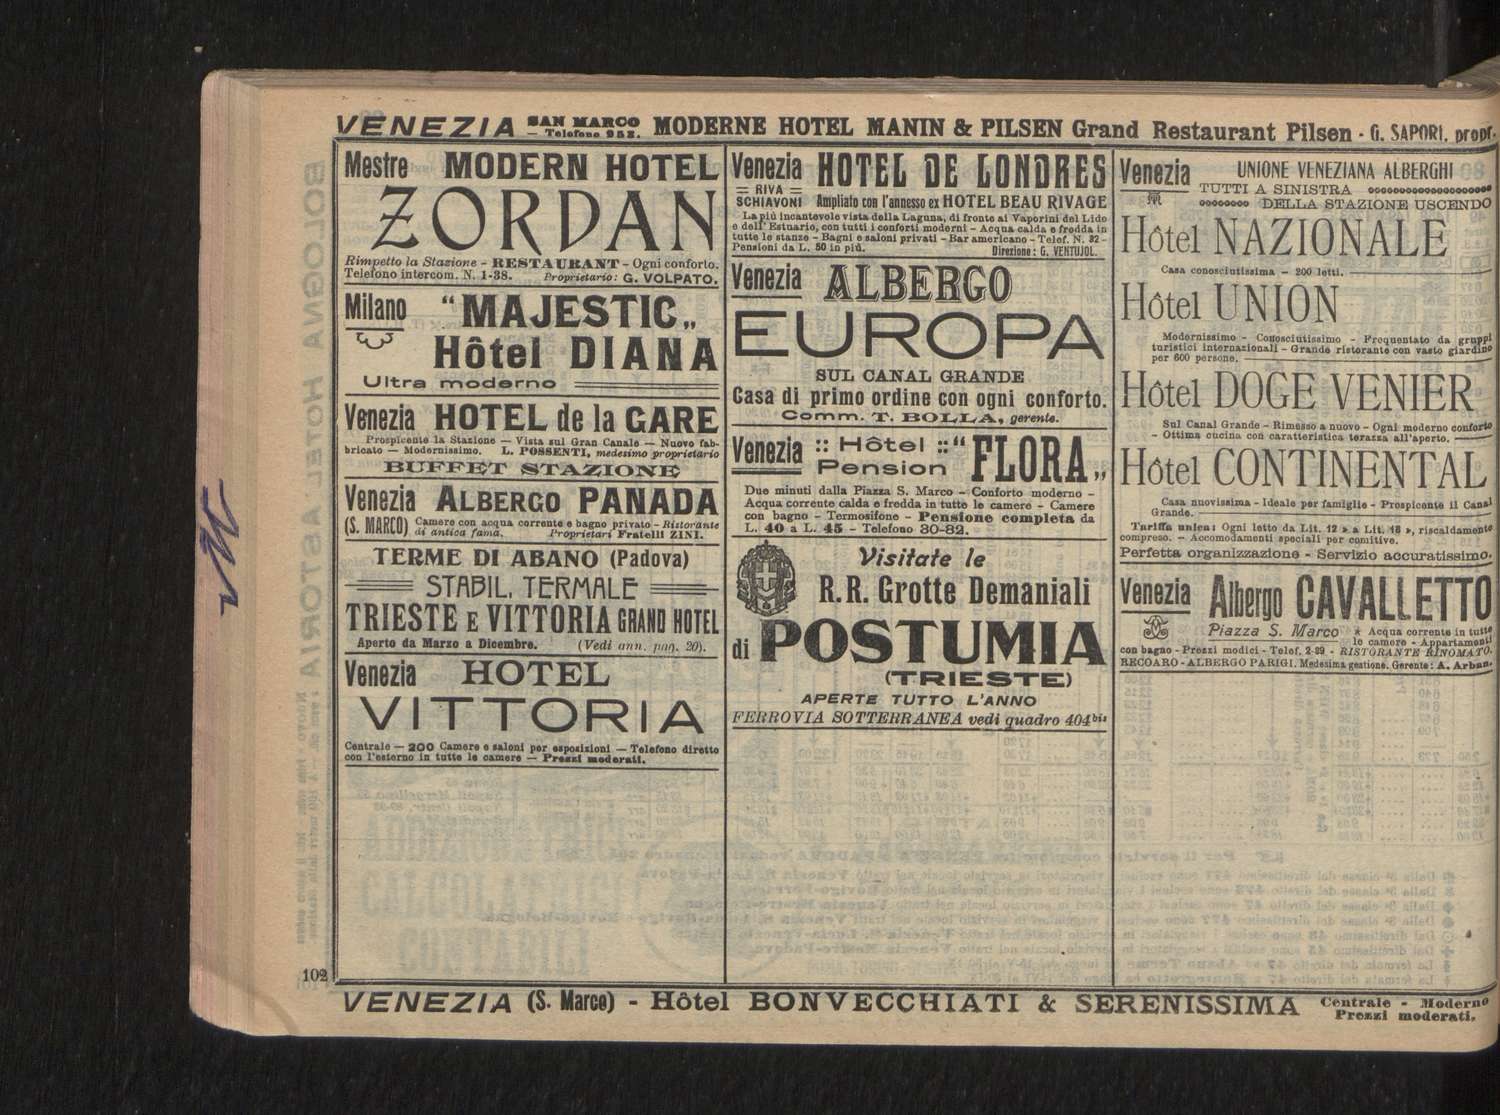 VENEZIA SAN MARCO — Telefono 952. MODERNE HOTEL MANIN & PILSEN Grand Restaurant Pilsen - G. SAPORI, propr.
Mestre MODERN HOTEL
ZORDAN
Rimpetto la Stazione - RESTAURANT - Ogni conforto.
Telefono intercom. N. 1-38. Proprietario: G. VOLPATO.
Milano "MAJESTIC„
Hôtel DIANA
Ultra moderno
Venezia HOTEL de la GARE
Prospicente la Stazione — Vista sul Gran Canale — Nuovo fab-
bricato — Modernissimo. L. POSSENTI, medesimo proprietario
BUFFET STAZIONE
Venezia ALBERGO PANADA
(S. MARCO) Camere con acqua corrente e bagno privato - Ristorante
di antica fama. Proprietari Fratelli ZINI.
TERME DI ABANO (Padova)
STABIL. TERMALE
TRIESTE E VITTORIA GRAND HOTEL
Aperto da Marzo a Dicembre. (Vedi ann. pag. 20).
Venezia HOTEL
VITTORIA
Centrale — 200 Camere e saloni per esposizioni — Telefono diretto
con l'esterno in tutte le camere — Prezzi moderati.
102
Venezia HOTEL DE LONDRES
= RIVA =
SCHIAVONI Ampliato con l'annesso ex HOTEL BEAU RIVAGE
La più incantevole vista della Laguna, di fronte ai Vaporini del Lido
e dell'Estuario, con tutti i conforti moderni - Acqua calda e fredda in
tutte le stanze - Bagni e saloni privati - Bar americano - Telef. N. 32 -
Pensioni da L. 50 in più. Direzione: G. VENTUJOL.
Venezia ALBERGO
EUROPA
SUL CANAL GRANDE
Casa di primo ordine con ogni conforto.
Comm. T. BOLLA, gerente.
Venezia :: Hôtel :: "FLORA„
Pension
Due minuti dalla Piazza S. Marco - Conforto moderno -
Acqua corrente calda e fredda in tutte le camere - Camere
con bagno - Termosifone - Pensione completa da
L. 40 a L. 45 - Telefono 30-82.
Visitate le
R.R. Grotte Demaniali
di POSTUMIA
(TRIESTE)
APERTE TUTTO L'ANNO
FERROVIA SOTTERRANEA vedi quadro 404 bis
Venezia UNIONE VENEZIANA ALBERGHI
TUTTI A SINISTRA
DELLA STAZIONE USCENDO
Hôtel NAZIONALE
Casa conosciutissima - 200 letti.
Hôtel UNION
Modernissimo - Conosciutissimo - Frequentato da gruppi
turistici internazionali - Grande ristorante con vasto giardino
per 600 persone.
Hôtel DOGE VENIER
Sul Canal Grande - Rimesso a nuovo - Ogni moderno conforto
- Ottima cucina con caratteristica terazza all'aperto.
Hôtel CONTINENTAL
Casa nuovissima - Ideale per famiglie - Prospicente il Canal
Grande.
Tariffa unica: Ogni letto da Lit. 12 » a Lit. 18 », riscaldamento
compreso. - Accomodamenti speciali per comitive.
Perfetta organizzazione - Servizio accuratissimo.
Venezia Albergo CAVALLETTO
Piazza S. Marco * Acqua corrente in tutte
le camere - Appartamenti
con bagno - Prezzi modici - Telef. 2-89 - RISTORANTE RINOMATO.
RECOARO - ALBERGO PARIGI. Medesima gestione. Gerente: A. Arban.
VENEZIA (S. Marco) - Hôtel BONVECCHIATI & SERENISSIMA Centrale - Moderno
Prezzi moderati.